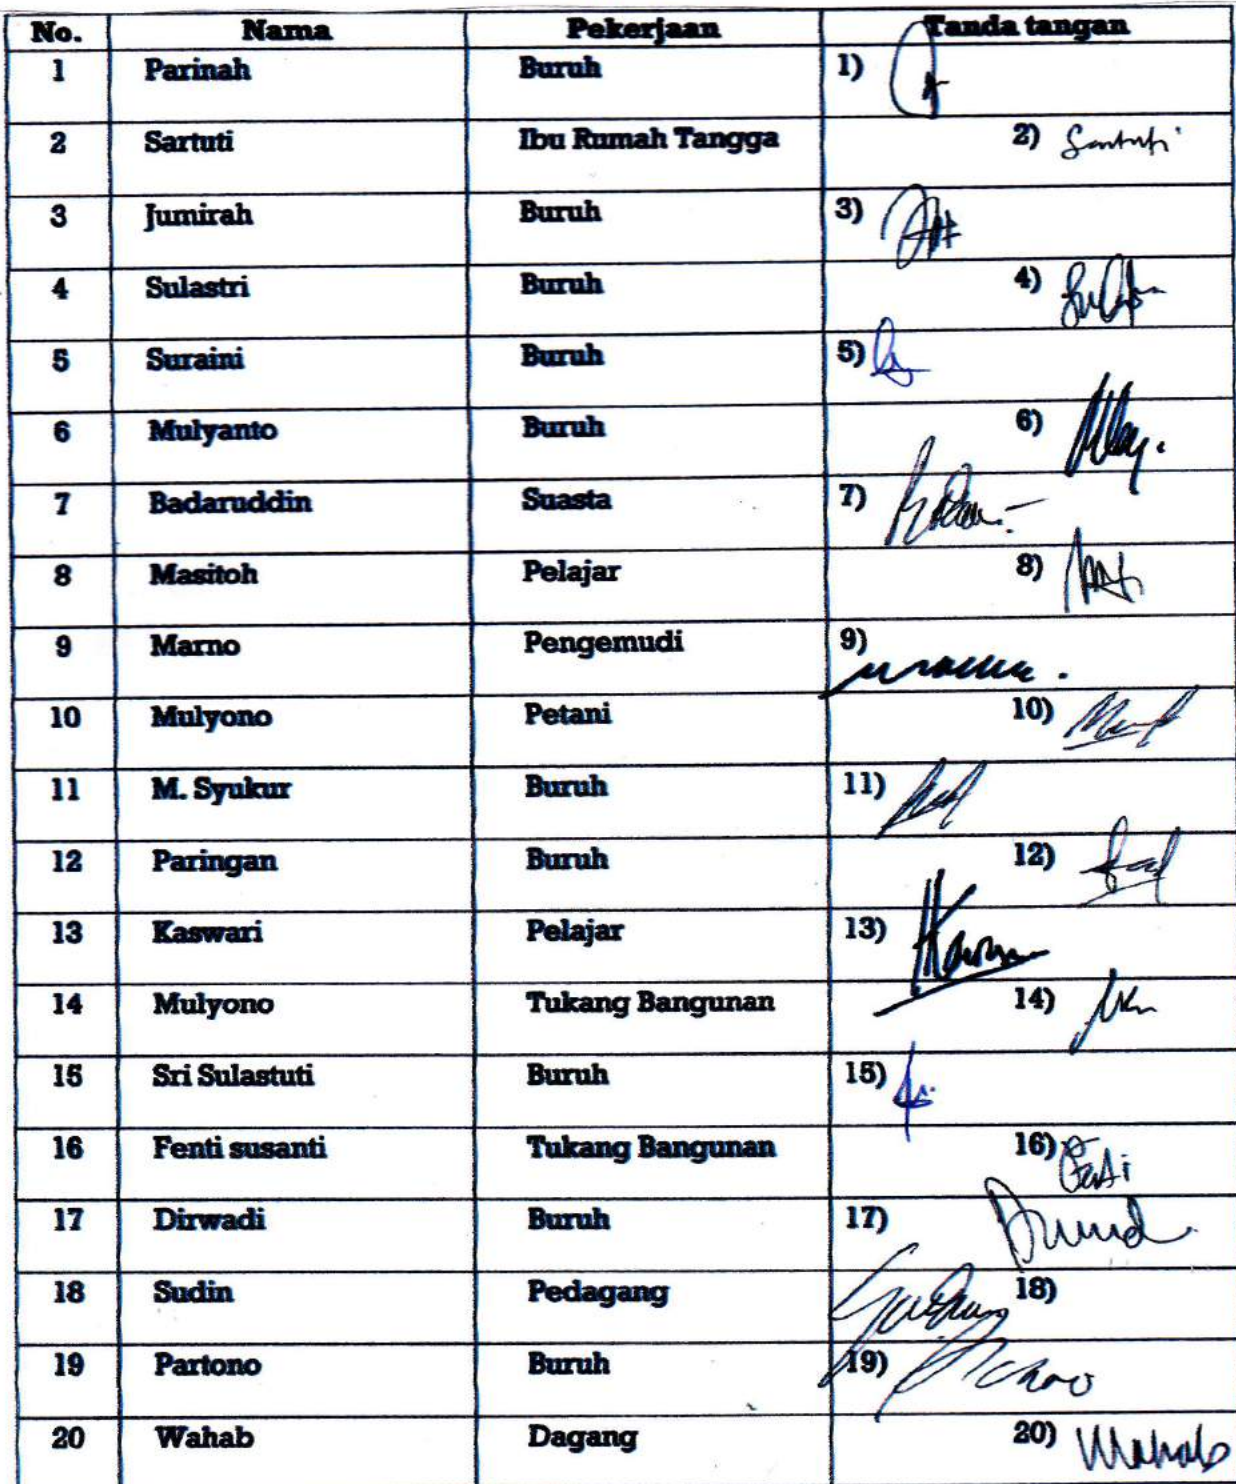 No. Nama Pekerjaan Tanda tangan
1 Parinah Buruh 1)
2 Sartuti Ibu Rumah Tangga 2) Sartuti
3 Jumirah Buruh 3)
4 Sulastri Buruh 4)
5 Suraini Buruh 5)
6 Mulyanto Buruh 6)
7 Badaruddin Suasta 7)
8 Masitoh Pelajar 8)
9 Marno Pengemudi 9)
10 Mulyono Petani 10)
11 M. Syukur Buruh 11)
12 Paringan Buruh 12)
13 Kaswari Pelajar 13)
14 Mulyono Tukang Bangunan 14)
15 Sri Sulastuti Buruh 15)
16 Fenti susanti Tukang Bangunan 16)
17 Dirwadi Buruh 17)
18 Sudin Pedagang 18)
19 Partono Buruh 19)
20 Wahab Dagang 20) Wahab